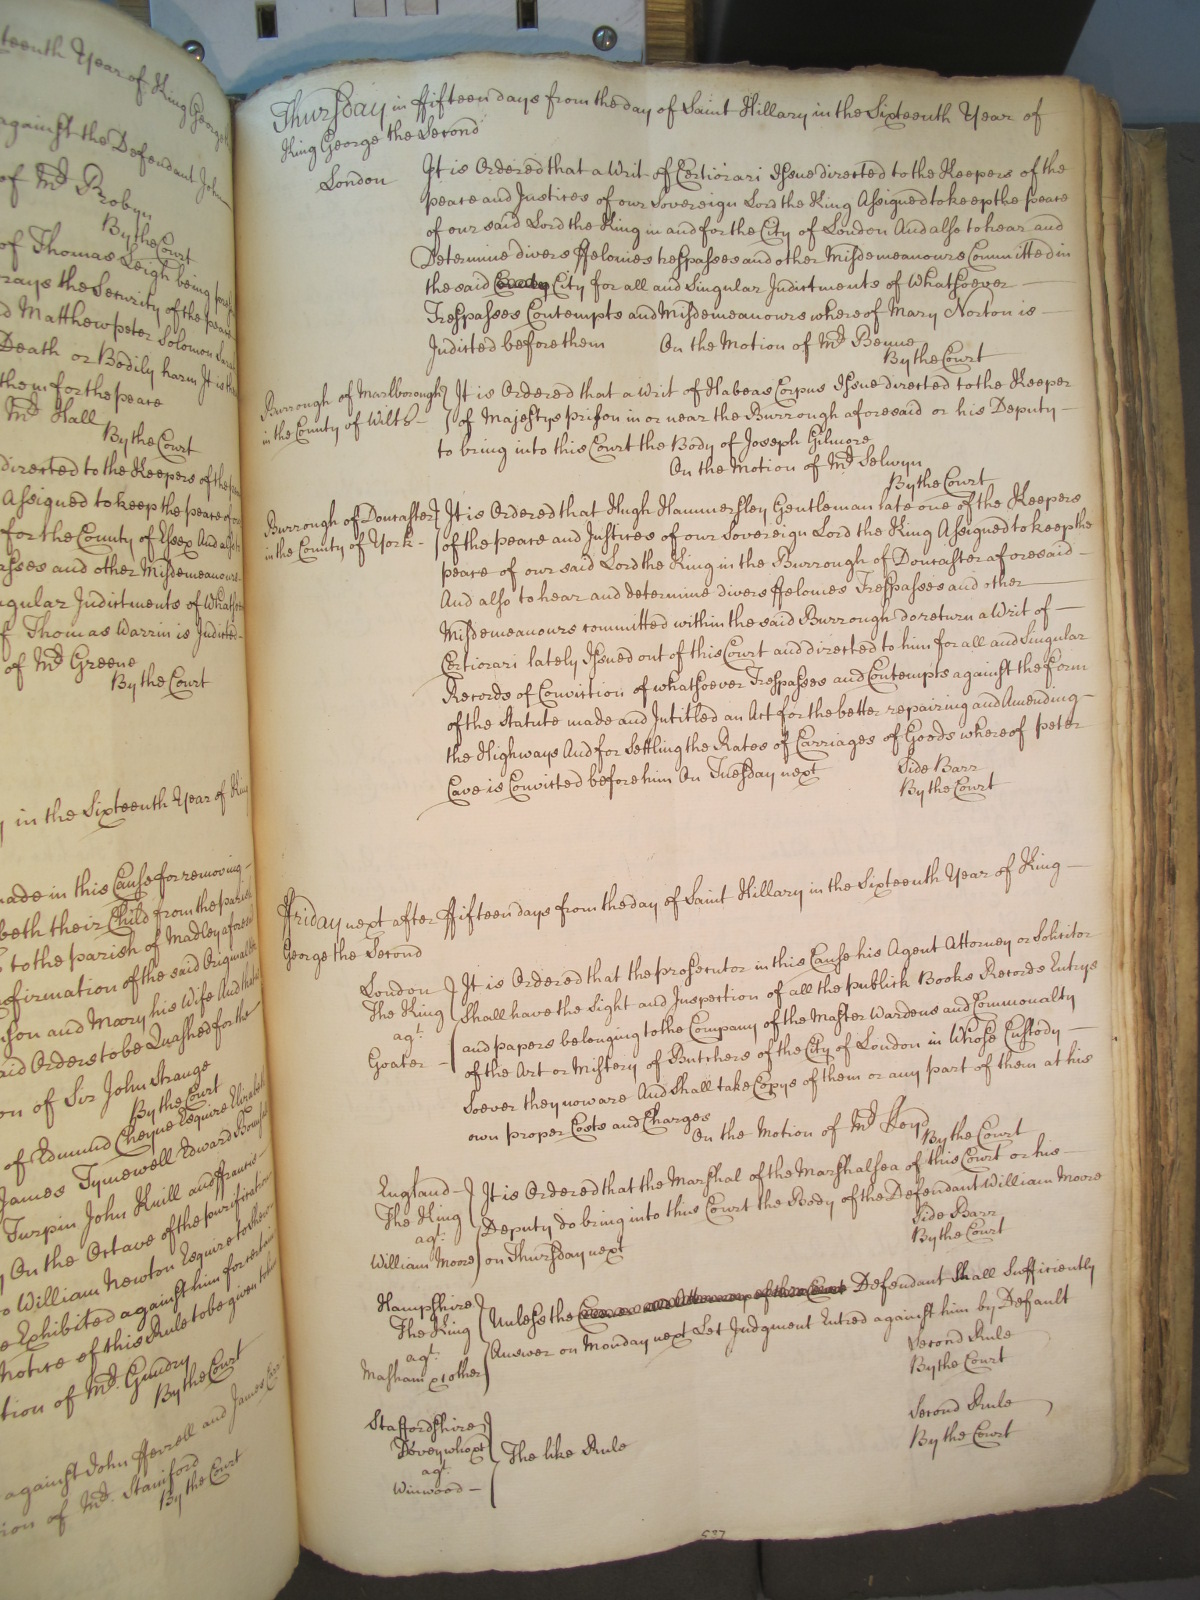 teenth Year of King George
against the Defendant John
of Mr. Probyn
By the Court
of Thomas Leigh being
prays the Security of the peace
Matthew peter Solomon
Death or Bodily harm It is
them for the peace
Mr. Hall
By the Court
directed to the Keepers of the
Assigned to keep the peace of
for the County of Essex And also
asses and other Misdemeanours
ngular Indictments of Whatso
Thomas Warrin is Indicted
of Mr. Greene
By the Court
in the Sixteenth Year of King
made in this Cause for removing
beth their Child from the parish
to the parish of Madley aforesaid
nfirmation of the said Original
son and Mary his Wife And the
aid Orders to be Quashed for the
on of Sir John Strange
By the Court
of Edmund Cheyne Esquire Elizabeth
James Tymewell Edward
Turpin John Knill and Francis
On the Octave of the purification
William Newton Esquire to shew
Exhibited against him for certain
Notice of this Rule to be given to him
tion of Mr. Gundry
By the Court
against John Ferrell and James
ion of Mr. Staniford
By the Court
Thursday in ffifteen days from the day of Saint Hillary in the Sixteenth Year of
King George the Second
London It is Ordered that a Writ of Certiorari Issue directed to the Keepers of the
peace and Justices of our Sovereign Lord the King Assigned to keep the peace
of our said Lord the King in and for the City of London And also to hear and
Determine divers ffelonies trespasses and other Misdemeanours Committed in
the said City for all and Singular Indictments of Whatsoever
Trespasses Contempts and Misdemeanours whereof Mary Norton is
Indicted before them On the Motion of Mr. Benne
By the Court
Burrough of Marlborough It is Ordered that a Writ of Habeas Corpus Issue directed to the Keeper
in the County of Wilts of Majestys prison in or near the Burrough aforesaid or his Deputy
to bring into this Court the Body of Joseph Gilmore
On the Motion of Mr. Selwyn
By the Court
Burrough of Doncaster It is Ordered that Hugh Hammersley Gentleman late one of the Keepers
in the County of York of the peace and Justices of our Sovereign Lord the King Assigned to keep the
peace of our said Lord the King in the Burrough of Doncaster aforesaid
And also to hear and determine divers ffelonies Trespasses and other
Misdemeanours committed within the said Burrough do return a Writ of
Certiorari lately Issued out of this Court and directed to him for all and Singular
Records of Conviction of whatsoever Trespasses and Contempts against the Form
of the Statute made and Intitled an Act for the better repairing and Amending
the Highways And for Settling the Rates of Carriages of Goods whereof peter
Cave is Convicted before him On Tuesday next Side Barr
By the Court
ffriday next after ffifteen days from the day of Saint Hillary in the Sixteenth Year of King
George the Second
London It is Ordered that the prosecutor in this Cause his Agent Attorney or Solicitor
The King Shall have the Sight and Inspection of all the publick Books Records Entrys
agt. and papers belonging to the Company of the Master Wardens and Commonalty
Goater of the Art or Mistery of Butchers of the City of London in Whose Custody
soever they now are And Shall take Copys of them or any part of them at his
own proper Costs and Charges
On the Motion of Mr.
By the Court
England It is Ordered that the Marshal of the Marshalsea of this Court or his
The King Deputy do bring into this Court the Body of the Defendant William Moore
agt. Side Barr
William Moore on Thursday next By the Court
Hampshire Unless the Defendant Shall Sufficiently
The King Answer on Monday next Let Judgment Entred against him by Default
agt. Second Rule
Masham & other By the Court
Staffordshire Second Rule
The like Rule By the Court
agt.
Winwood
537